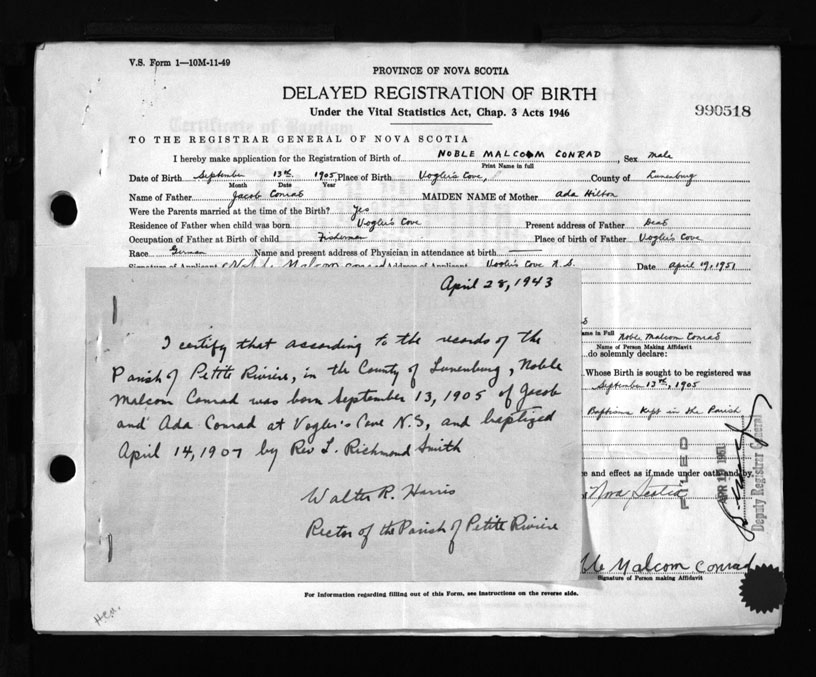 V.S. Form 1—10M-11-49
PROVINCE OF NOVA SCOTIA
DELAYED REGISTRATION OF BIRTH
Under the Vital Statistics Act, Chap. 3 Acts 1946
990518
TO THE REGISTRAR GENERAL OF NOVA SCOTIA
I hereby make application for the Registration of Birth of NOBLE MALCOM CONRAD, Sex male
Print Name in full
Date of Birth September 13th 1905 Place of Birth Vogler's Cove, County of Lunenburg
Month Date Year
Name of Father Jacob Conrad MAIDEN NAME of Mother Ada Hilton
Were the Parents married at the time of the Birth? Yes
Residence of Father when child was born Vogler's Cove Present address of Father Dead
Occupation of Father at Birth of child Fisherman Place of birth of Father Vogler's Cove
Race German Name and present address of Physician in attendance at birth
Signature of Applicant Noble Malcom Conrad Address of Applicant Vogler's Cove N.S. Date April 19, 1951
April 28, 1943
I certify that according to the records of the
Parish of Petite Riviere, in the County of Lunenburg, Noble
Malcom Conrad was born September 13, 1905 of Jacob
and Ada Conrad at Vogler's Cove N.S, and baptized
April 14, 1907 by Rev L. Richmond Smith
Walter R. Harris
Rector of the Parish of Petite Riviere
ame in Full Noble Malcom Conrad
Name of Person Making Affidavit
do solemnly declare:
Whose Birth is sought to be registered was
September 13th, 1905
Baptisms Kept in the Parish
ce and effect as if made under oath and by,
Nova Scotia
FILED
Deputy Registrar General
ble Malcom Conrad
Signature of Person making Affidavit
For Information regarding filling out of this Form, see instructions on the reverse side.